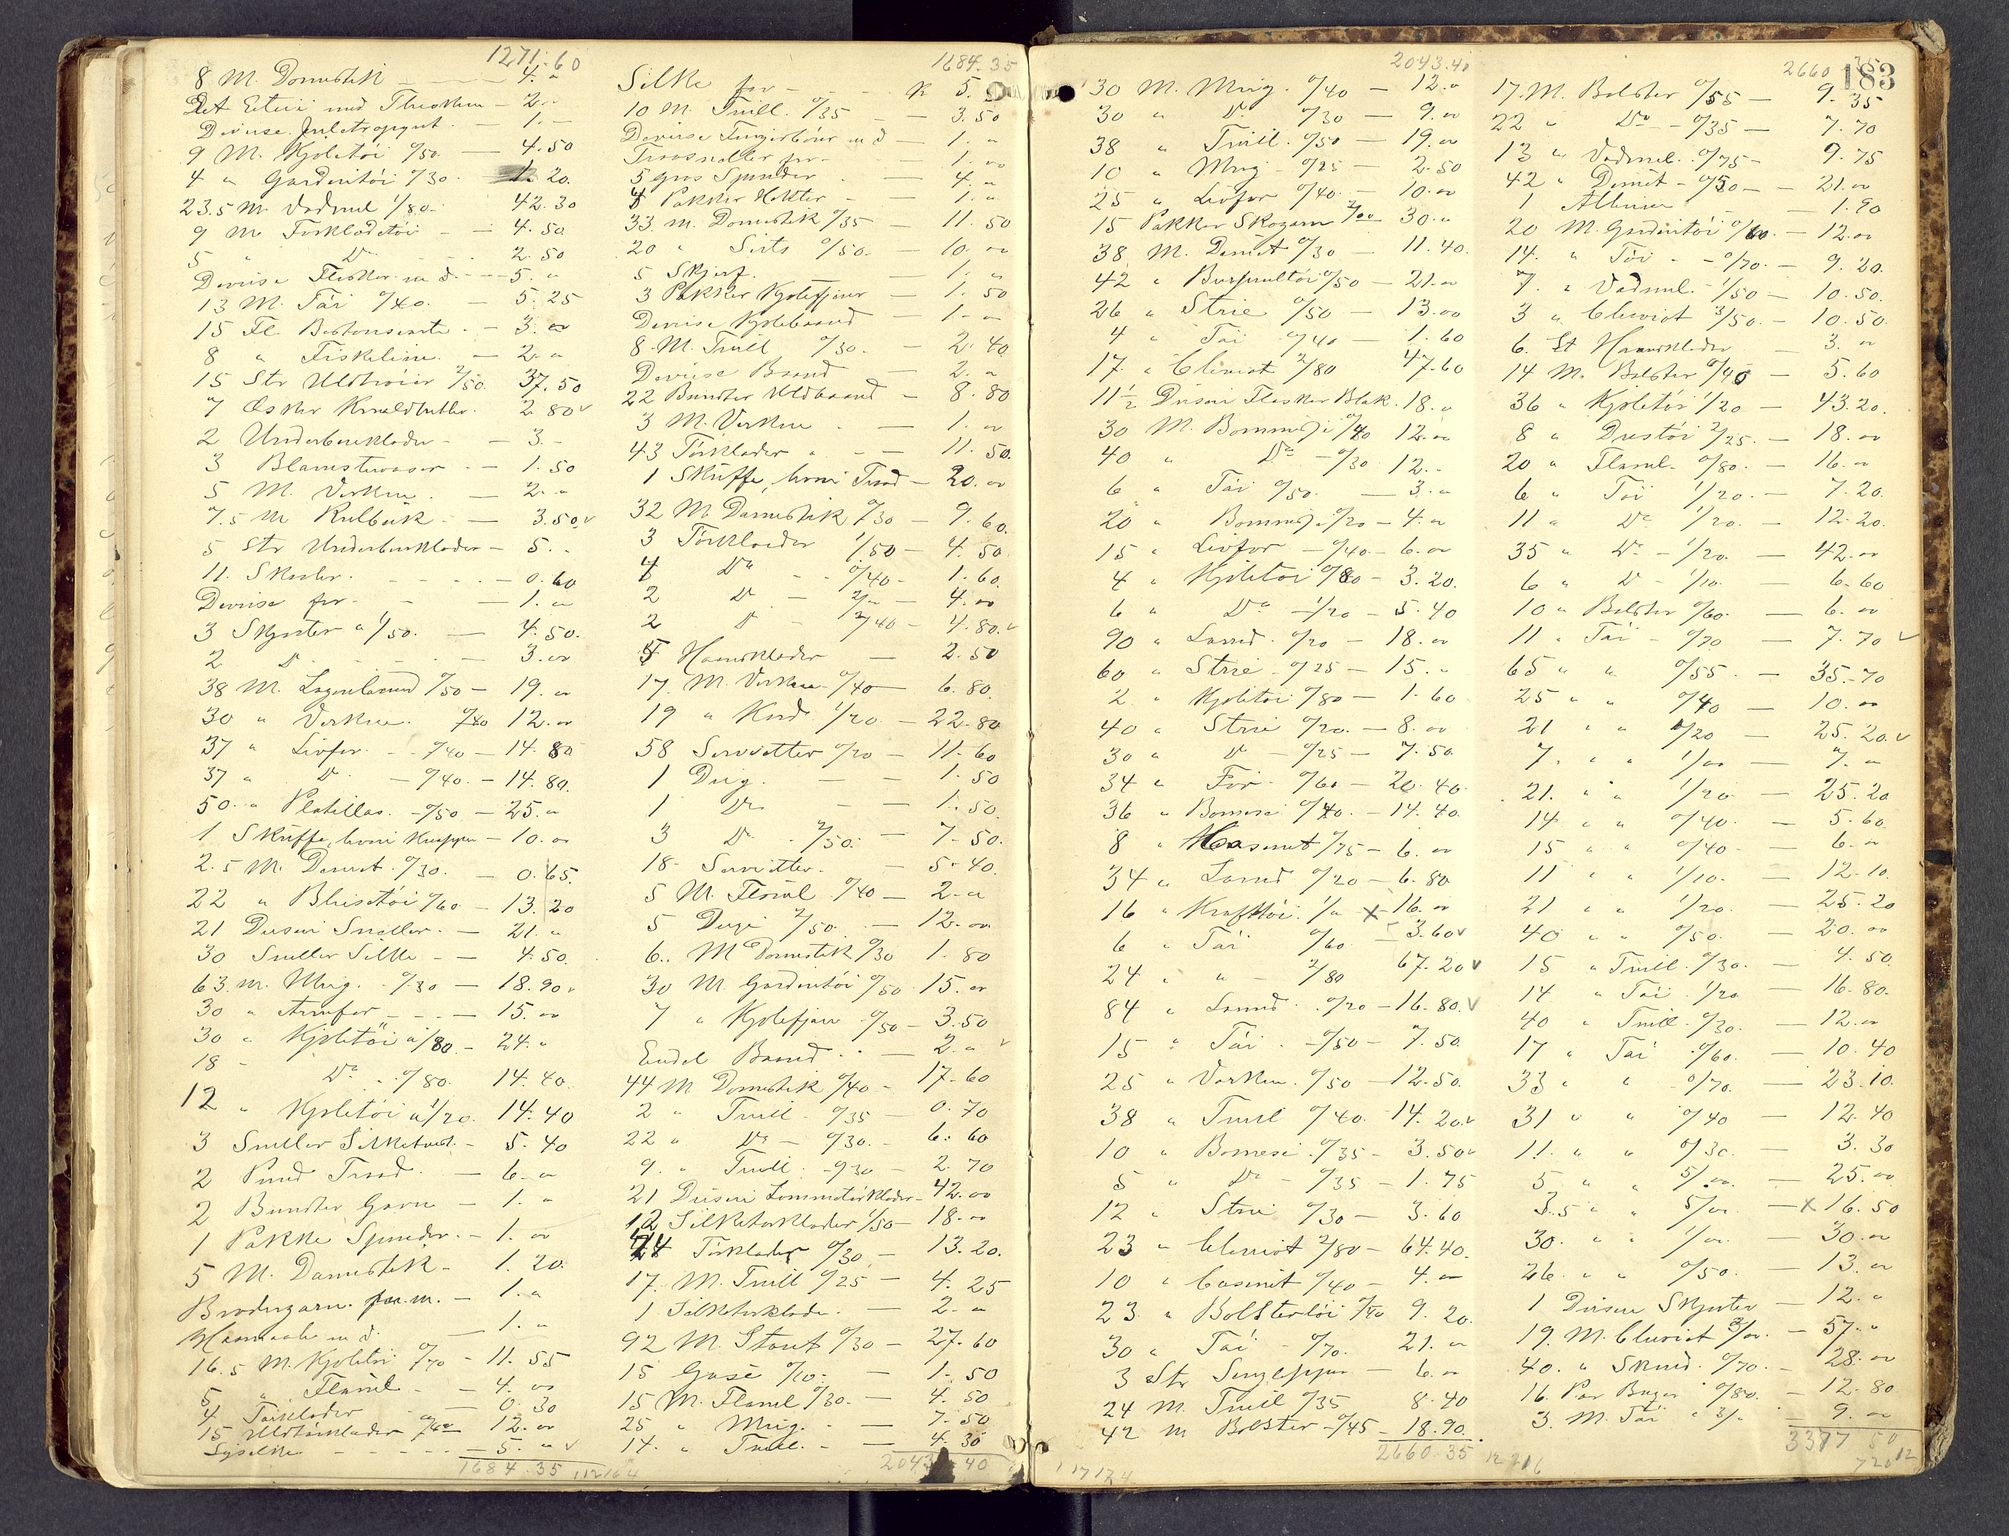 1271.60
8 M. Domestik — 4. "
Det Etui med Flasker — 2. -
Diverse Juletrepynt — 1. —
9 M. Kjoletöi 0/50 — 4.50
4 " Gardintöi 0/30 1.20
23.5 M. Vadmel 1/80 42.30
9 M Forklædetöi — 4.50
5 " Do — 2.50
Diverse Flasker m d. — 5. "
13 M. Töi 0/40. — 5.25
15 Fl. — 3. "
8 " Fiskeline — 2. "
15 Str Uldtröier 2/50 37.50
7 Æsker Knaldhetter 2.80
2 Underbenklæder — 3. -
3 Blomstervaser — 1.50
5 M. Verken — 2. "
7.5 M Rulbuk — 3.50
5 Str Underbenklæder — 5. -
11. — 0.60
Diverse for — 1. "
3 Skjorter a 1/50. — 4.50.
2 Do — 3. "
38 M. Lagenlærred 0/50 — 19. "
30 " Verken 0/40 12. "
37 " Livfor — 0/40 — 14.80
37 " Do — 0/40. — 14.80.
50. " Platillas. 0/50. — 25. "
1 Skuffe, hvori Knapper — 10. "
2.5 M. Demet 0/30. — 0.65.
22 " 0/60 — 13.20
21 Dusin Sneller. — 21. "
30 Sneller Silke — 4.50.
63. m. Mrig. 0/30 — 18.90
30 " Armfor — 15. "
30 " Kjoletöi a /80 — 24. "
18 - Do - 0/80. 14.40.
12 " Kjoletöi a 1/20. 14.40
3 Sneller Silketvist — 5.40
2 Pund Traad. — 6. "
2 Bundter Garn — 1. "
1 Pakke Spender — 1. "
5 M. Domestik — 1.20.
Brodergarn m. — 1. "
m d. — 1. "
16.5 M. Kjoletöi 0/70 — 11.55
5 " Flanel — 4. "
4 Törklæder — 0.30
15 Uldtörklæder 12. "
— 5. "
1684.35

1684.35
Silke for — K 5. "
10 M. Tvill 0/35 — 3.50
Diverse Fingerböl m d — 1. "
Traadsneller for — 1. "
5 gros Spender — 4. "
4 Pakker Hekter — 1. "
33 m. Domestik 0/35 — 11.50
20 " Sirts 0/50. — 10. "
5 Skjerf — 1. "
3 Pakker Kjolefjær — 1.50
Diverse Kjolebaand — 1. "
8. M. Tvill 0/30. — 2.40
Diverse Baand — 2. "
22 Bundter Uldbaand — 8.80
3 M. Verken — 1. "
43 Törklæder " — 11.50.
1 Skuffe, hvori Traad — 20. "
32 M. Domestik 0/30 — 9.60.
3 Törklæder 1/50 — 4.50.
4 Do — 0/40 — 1.60.
2 Do — 2/" — 4. "
2 Do — 2/40 — 4.80.
5 Haandklæder — 2.50
17. M. Verken 0/40 — 6.80.
19 " 1/20 — 22.80
58 Servietter 0/20 — 11.60
1 Dug. — 1.50
1 Do — 1.50.
3 Do 2/50. — 7.50.
18 Servietter. — 5.40.
5 M. Flanel 0/40 — 2. "
5 Duge 2/50. — 12. "
6. M Domestik 0/30 1.80
30 M Gardintöi 0/50 15. "
7 " Kjolefjær 0/50 — 3.50
Endel Baand — 2. "
44 M Domestik 0/40 — 17.60
2 " Tvill 0/35 — 0.70
22 " Do — 0/30. — 6.60
9. " Tvill 0/30 — 2.70
21 Dusin Lommetörklæder — 42. "
12 Silketörklæder 1/50 — 18. "
44 Törklæder 0/30 — 13.20.
17. M. Tvill 0/25 — 4.25
1 Silketörklæde. — 2. "
92 M. Stout 0/30 — 27.60
15 Gase 0/10. — 1.50
15 M. Flanel 0/30. — 4.50
25 " Mrig. — 7.50
14. " Tvill. — 4.30
2043.40

2043.40
30 M. Mrig. 0/40 — 12. "
30 " Do 0/30 — 9. "
38 " Tvill 0/50 — 19. "
10 " Mrig 0/25 — 2.50
25 " Livfor 0/40 — 10. "
15 Pakker Skogarn 2/00 30. "
38 M. Demet 0/30 — 11.40.
42 " 0/50 — 21. "
26 " Strie 0/50 — 13. "
4 " Töi 0/40 — 1.60
17. " Cheviot 2/80 47.60
11 1/2 Dusin Flasker Blæk 18. "
30 M. Bommesi 0/40 12. "
40 " Do — 0/30 12. -
6 " Töi 0/50. — 3. "
20 " Bommesi 0/20 — 4. "
15 " Livfor — 0/40 — 6. "
4 " Kjoletöi 0/80 — 3.20.
6 " Do — 1/20 — 5.40
90 " Lærred 0/20 — 18. "
60 " Strie 0/25 — 15. "
2 " Kjoletöi 0/80 — 1.60
40 " Strie 0/20. — 8. "
30 " Do — 0/25 — 7.50
34 " For 0/60 — 20.40.
36 " Bomesi 0/40. — 14.40.
8 " Casinet 0/75 — 6. "
34 " Lærred 0/20 — 6.80
16 " Krafttöi 1/" x 16. "
6 " Töi 0/60 — 3.60
24 " " 2/80 67.20
84 " Lærred 0/20 — 16.80.
15 " Töi — 0/50 — 7.50
25 " Verken 0/50 — 12.50.
38 " Tvill 0/40. 14.20
10 " Bomesi 0/35 — 3.50
5 " Do — 0/35 — 1.75
12 " Strie 0/30 — 3.60
23 " Cheviot 2/80 — 64.40.
10 " Casinet 0/40 — 4. "
23 " Bolstertöi 0/40 9.20.
30 " Töi 0/70. 21. "
3 Str Sengtepper — 6. "
24 M. Tvill 0/35 8.40
42 m Bolster 0/45 — 18.90.
2660.35

2660.35
183
17. M. Bolster 0/55 — 9.35
22 " Do — 0/35 — 7.70
13 " Vadmel 0/75 — 9.75
42 " Demet — 0/50 — 21. "
1 Album — 1.90
20 M. Gardintöi 0/60. — 12. "
14. " Töi — 0/70. — 9.20.
7. " Vadmel 1/50 — 10.50.
3 " Cheviot 3/50 — 10.50.
6. St Haandklæder — 3. "
14 M. Bolster 0/40 — 5.60
36 " Kjoletöi 1/20 — 43.20.
8 " Drestöi 2/25. — 18. "
20 " Flanel. 0/80. — 16. "
6 " Töi 1/20. — 7.20.
11 " Do 1/20. — 12.20.
35 " Do — 1/20. — 42. "
6 " Do — 1/10. — 6.60
10 " Bolster 0/60. — 6. "
11 " Töi 0/70 — 7.70
65 " " 0/55. — 35.70
25 " " 0/40 — 10. "
21 " " 1/20 — 25.20.
7. " " 1/00 — 7. "
21. " " 1/20 — 25.20
14 " " 0/40. — 5.60
15 " " 0/40. — 6. "
11 " " 1/10. — 12.10.
21 " " 1/20. — 25.20
40 " " 0/50. — 20. "
15 " Tvill 0/30. — 4.50.
14 " Töi 1/20 — 16.80.
40 " Tvill 0/30. — 12. "
17 " Töi 0/60. — 10.40
33 " " 0/70. — 23.10.
31 " " 0/40 — 12.40
11. " " 0/30. — 3.30
5 " " 5/00. — 25. "
3.5 " " 5/00. — x 16.50
30. " " 1/00. — 30. "
26. " " 0/50. — 13. "
1 Dusin Skjorter — 12. "
19. M. Cheviot 3/00. — 57. "
40. " 0/70. — 28. "
16. Par Buxer 0/80. — 12.80
3. M. Töi " 3/" — 9. "
3377 50